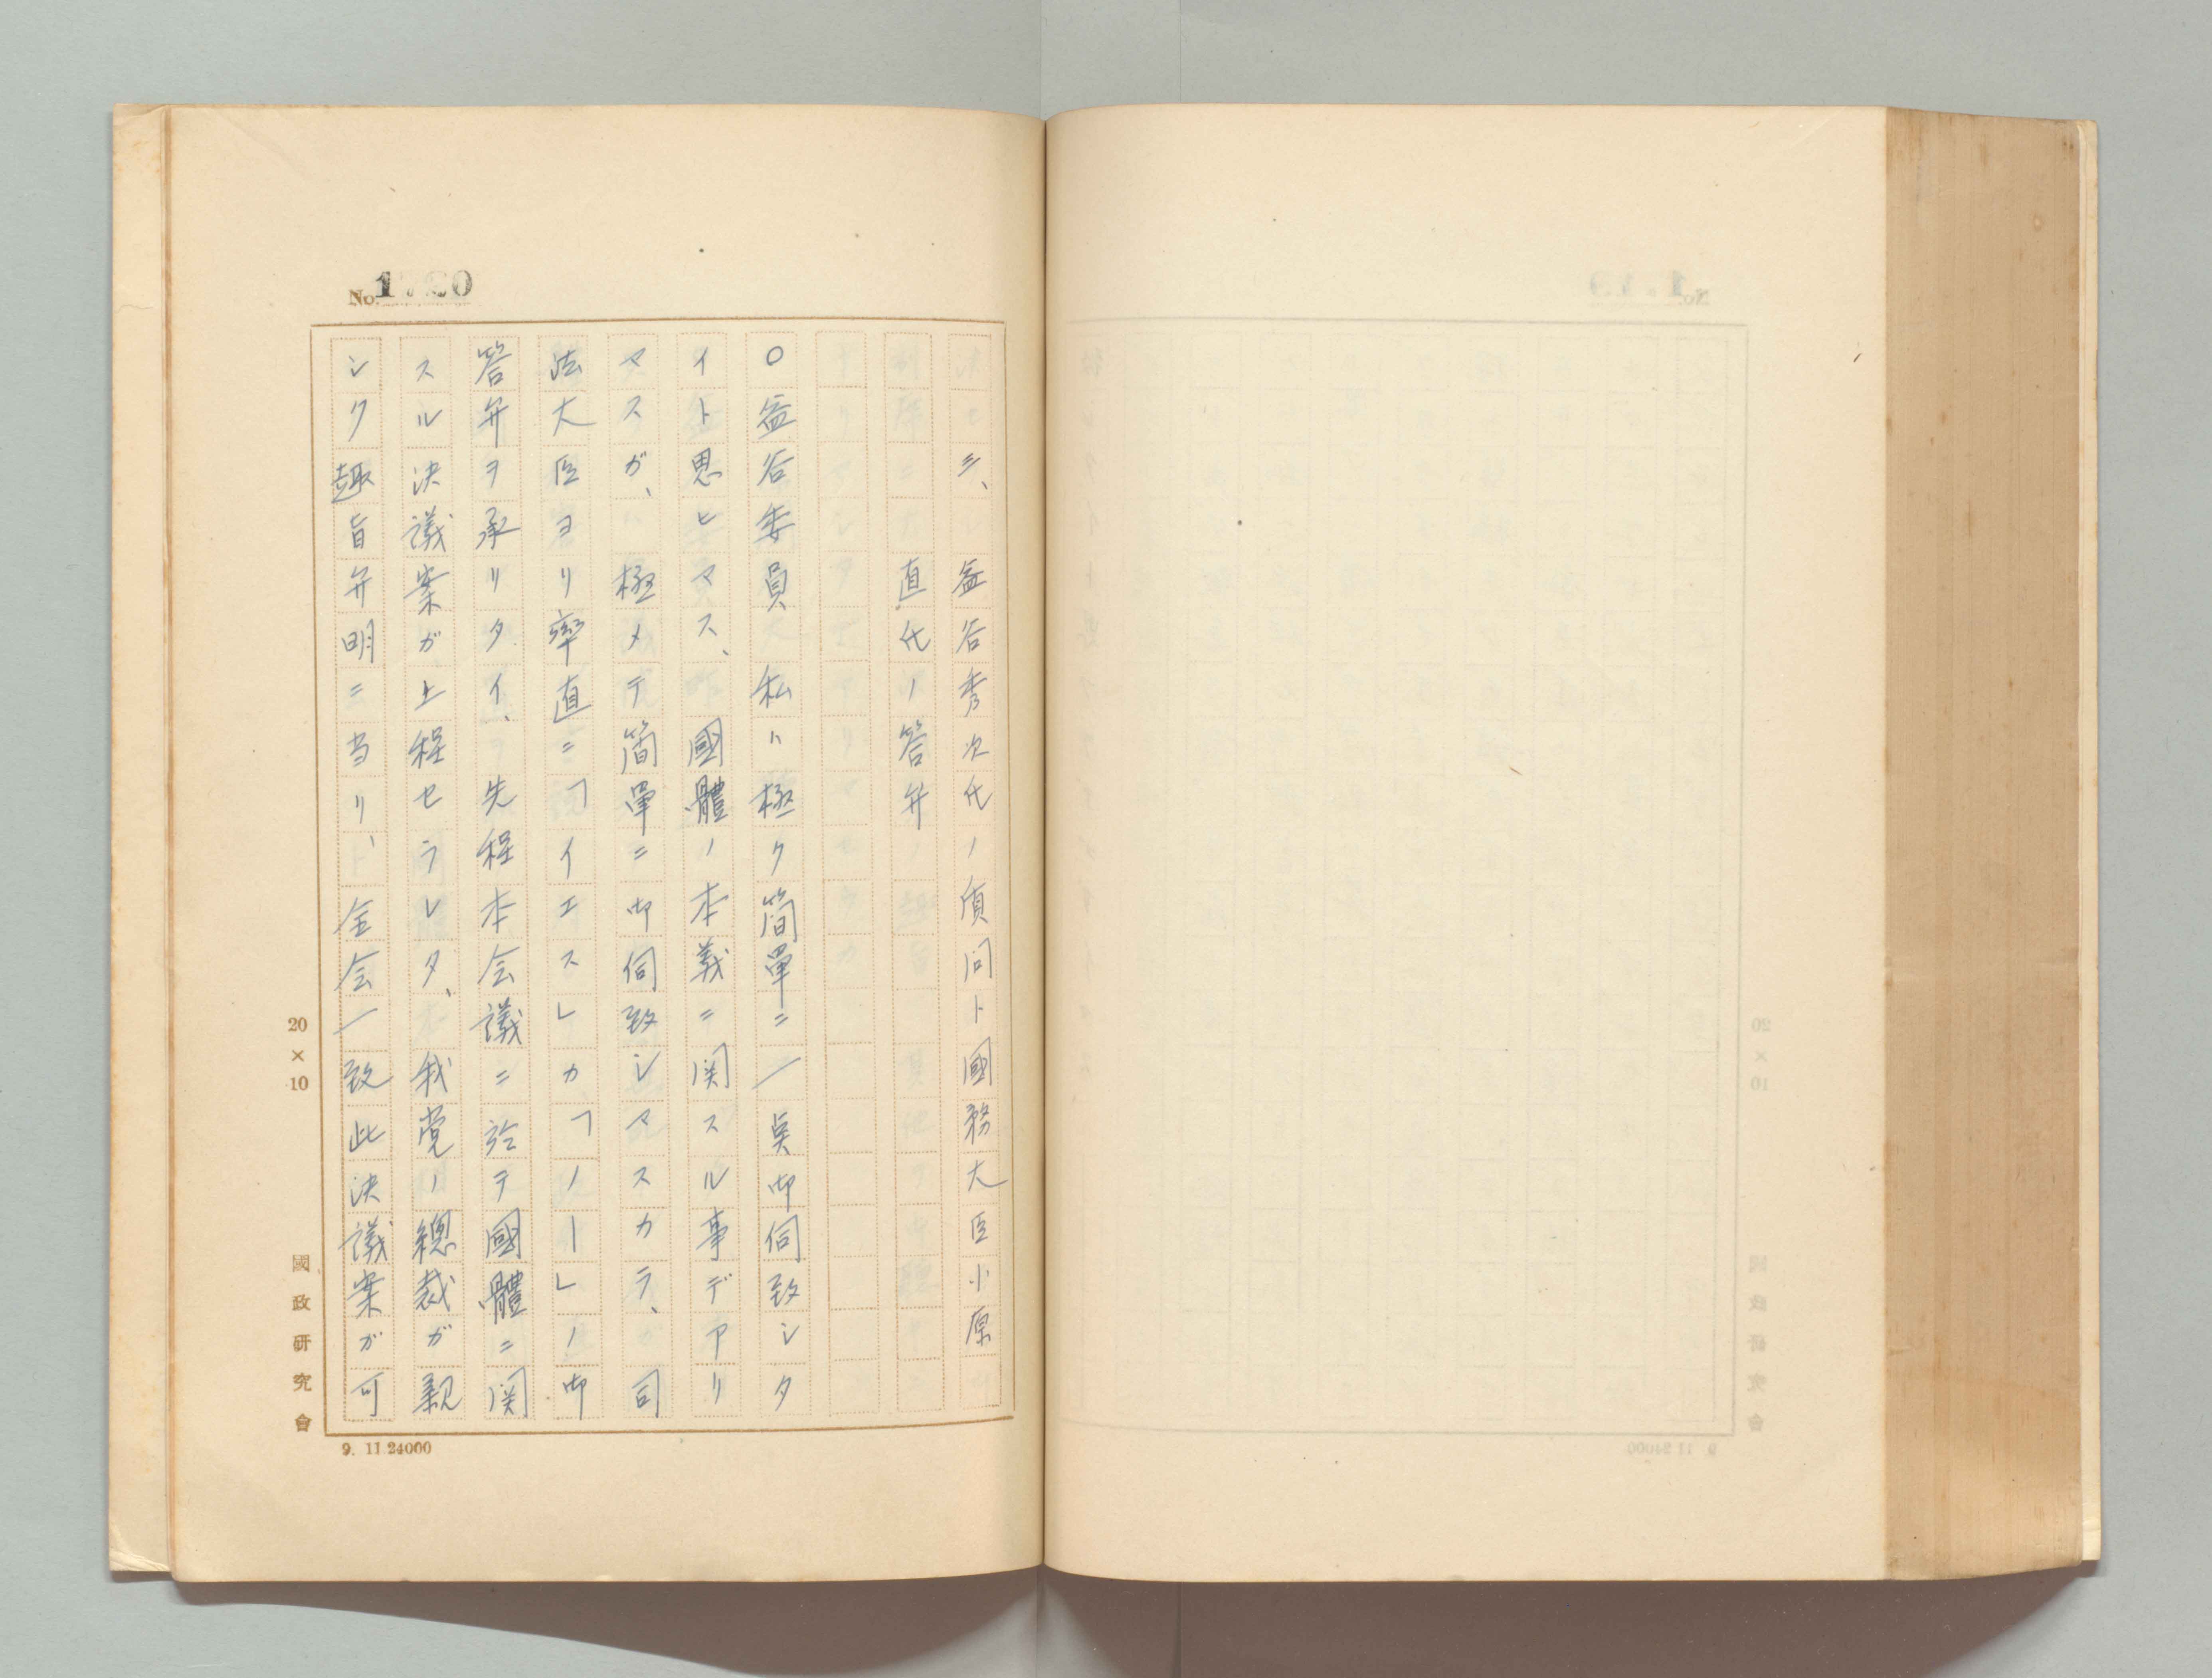 No.1720
三、益谷秀次氏ノ質問ト國務大臣小原
直氏ノ答弁
○益谷委員 私ハ極ク簡單ニ一点御伺致シタ
イト思ヒマス、國體ノ本義ニ関スル事デアリ
マスガ、極メテ簡單ニ御伺致シマスカラ、司
法大臣ヨリ率直ニ「イエス」カ「ノー」ノ御
答弁ヲ承リタイ、先程本会議ニ於テ國體ニ関
スル決議案ガ上程セラレタ、我党ノ總裁ガ親
シク趣旨弁明ニ当リ、全会一致此決議案ガ可
20×10
國政研究會
9. 11 24000